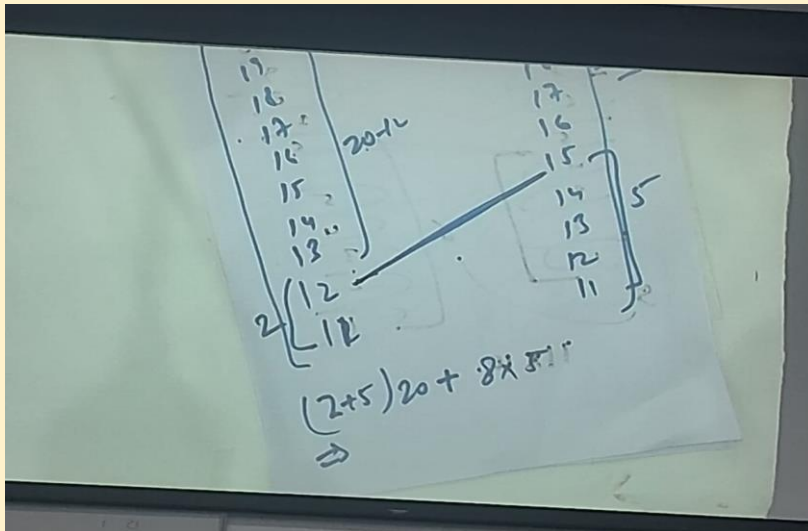 19
18
17
16
15
14
13
12
11
2
20-12
17
16
15
14
13
12
11
5
(2+5)20+ 8×5
⇒